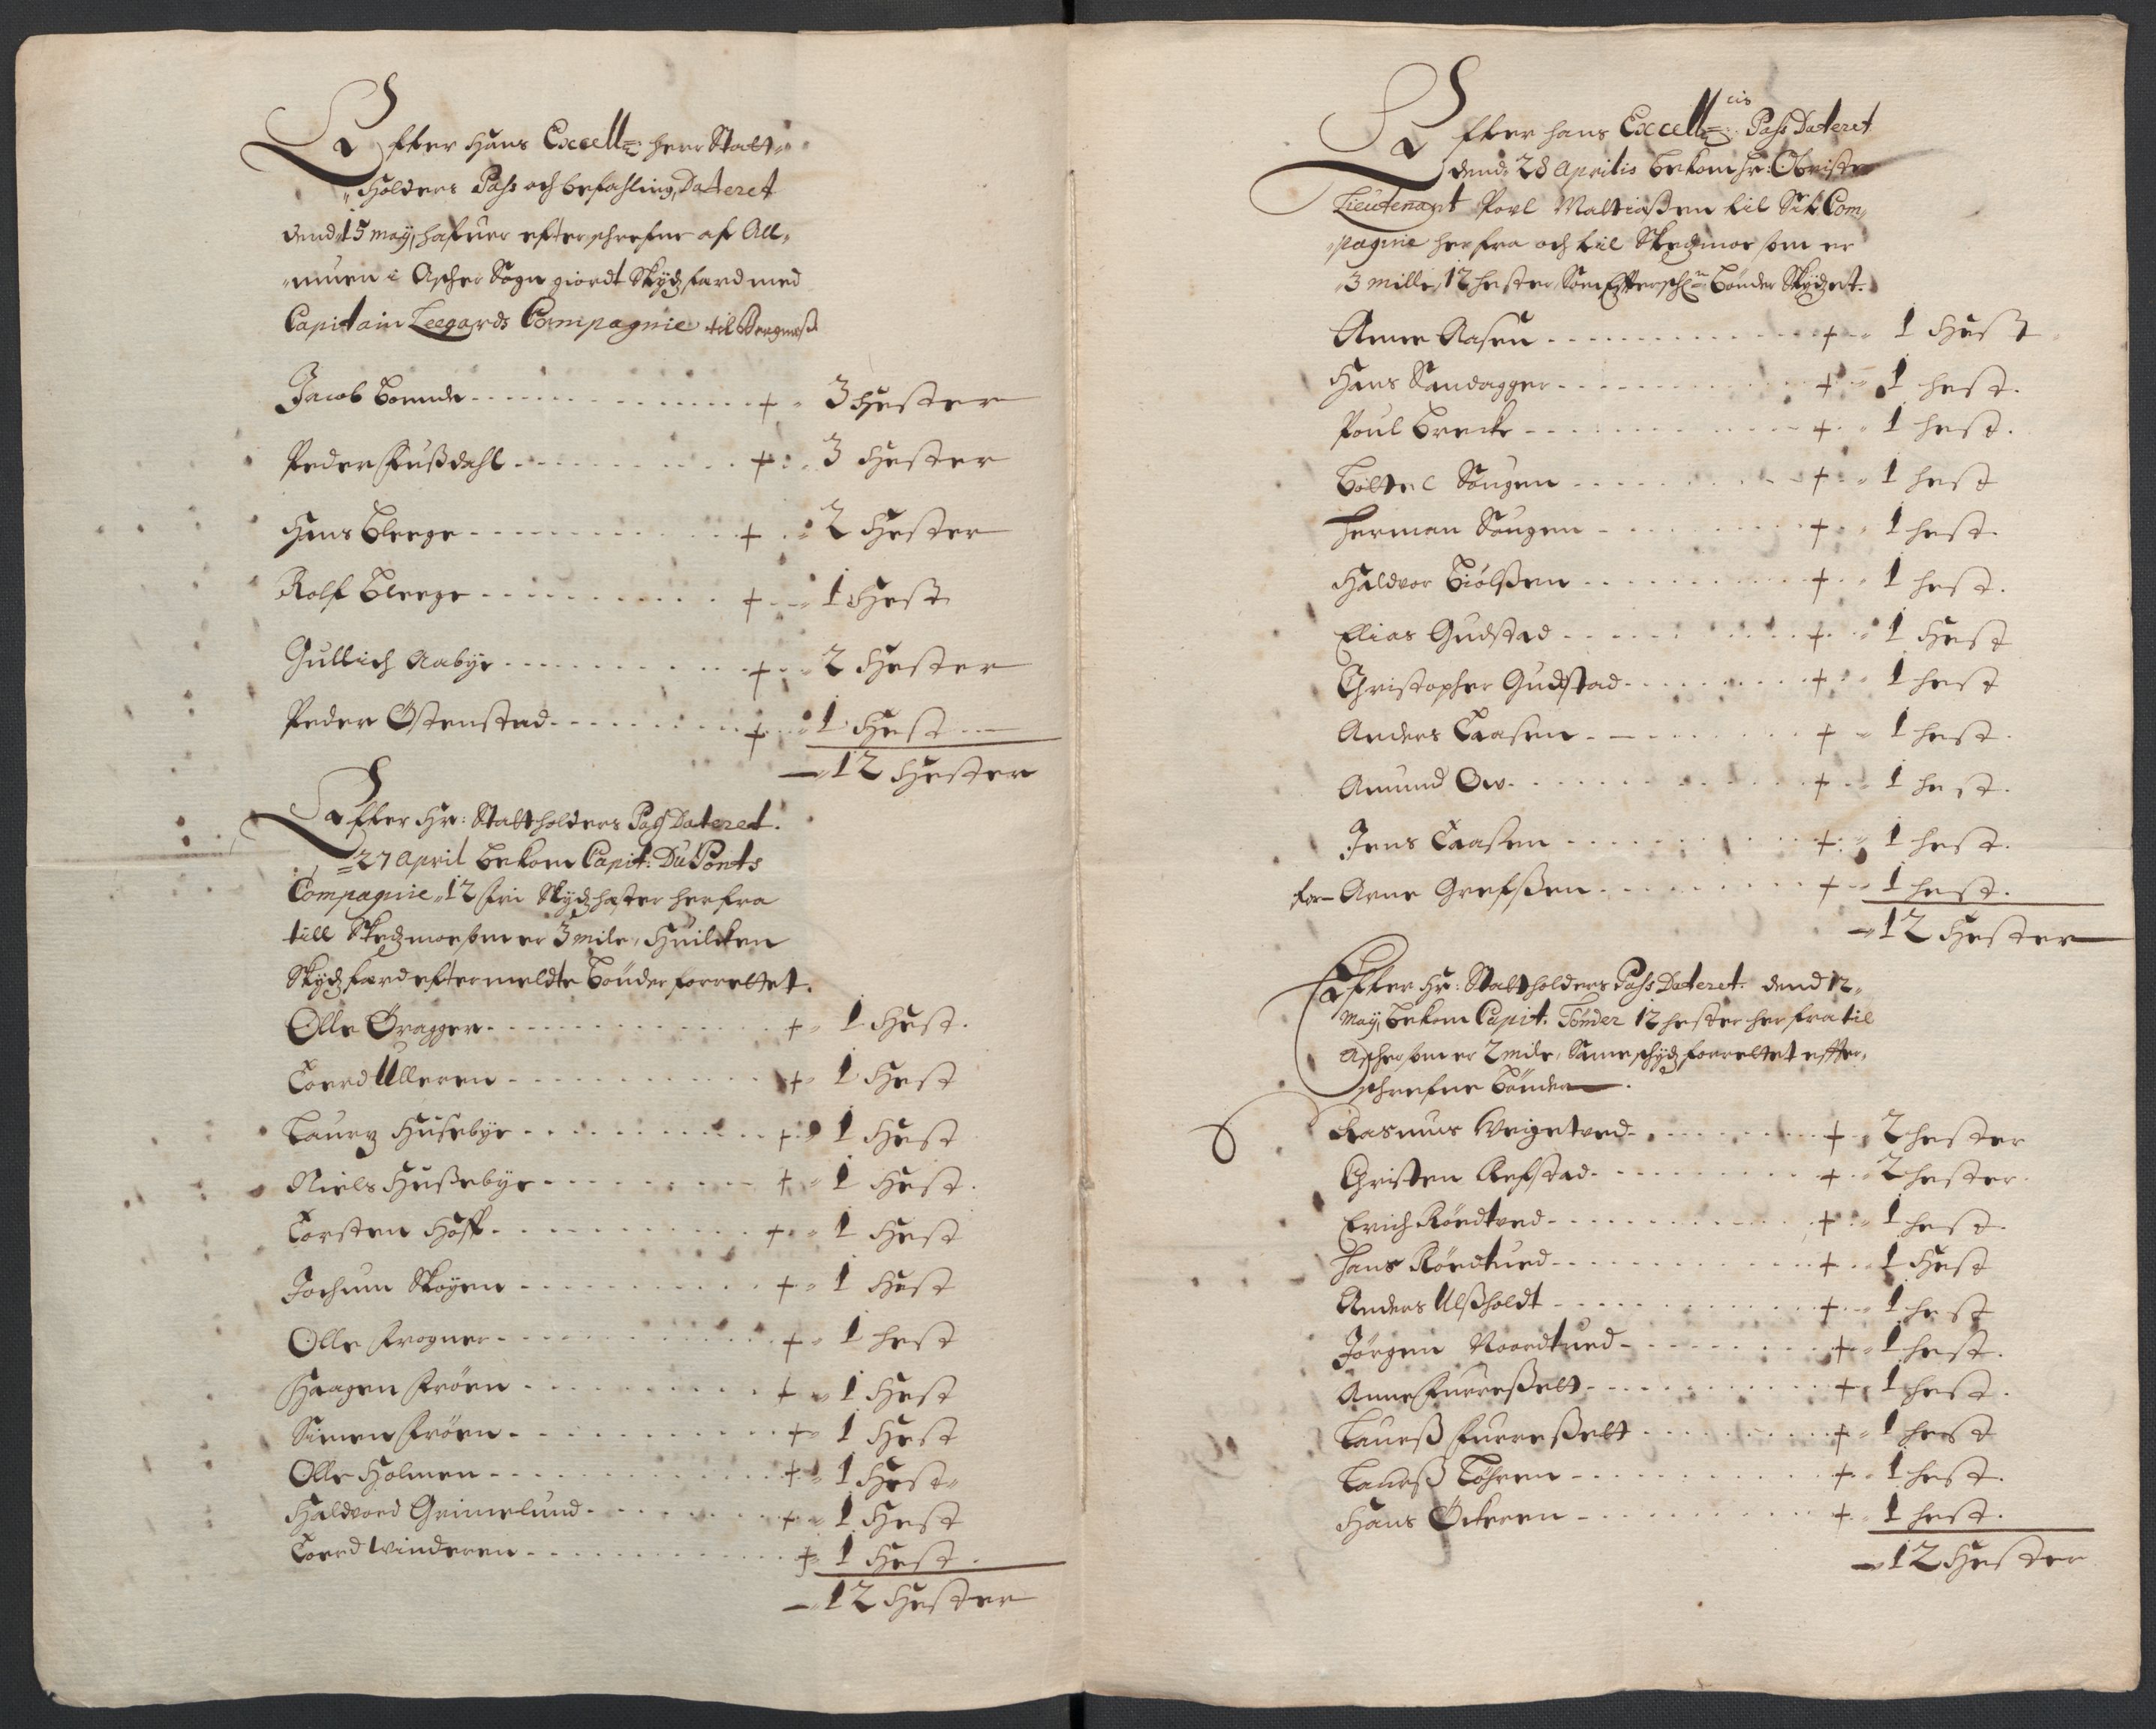 Effter Hans Excell: herr Statt-
Holders Pass och befahling, Dateret
dend 15 may, hafuer efterschrefne af All-
muen i Ascher Sogn giordt Skydtzferd med
Capitain Leegards Compagnie til
Jacob Bonnde + 3 Hester
Peder Fussdahl + 3 Hester
Hans Bleege + 2 Hester
Rolf Bleege + 1 Hest
Gullich Aabye + 2 Hester
Peder Östenstad + 1 Hest
12 Hester
Effter Hr: Stattholders Pass Dateret
27 April bekom Capit: Du Ponts
Compagnie 12 fri Skydtzhester herfra
till Skedzmoe som er 3 mile, Huilcken
Skydtzferd eftermeldte bönder forrettet.
Olle Öragger + 1 Hest.
Toerd Ulleren + 1 Hest
Lauritz Husebye + 1 Hest
Niels Hussebye + 1 Hest.
Torsten Hoff + 1 Hest
Jochum Skøyen + 1 Hest
Olle Frogner + 1 hest
Haagen Frøen + 1 Hest
Simen Frøen + 1 Hest
Olle Holmen + 1 Hest
Haldvord Grimelund + 1 Hest
Toerd Winderen + 1 Hest.
12 Hester
Effter hans Excell:cis Pass Dateret
dend 28 Aprilis bekom hr: Obriste
Lieutenant Povl Mattiassen til Sit Com-
pagnie herfra och til Skedzmoe som er
3 mille, 12 hester, Som Effterschne bönder Skydzet.
Arne Aasen + 1 Hest
Hans Sandagger + 1 hest.
Poul Brecke + 1 hest.
Bottel Sougen + 1 hest
Herman Sougen + 1 hest.
Haldvor Biölssen + 1 hest.
Elias Gudstad + 1 Hest
Christopher Gudstad + 1 hest
Anders Taasen + 1 hest.
Amund Ow + 1 hest.
Jens Taasen + 1 hest.
for Arne Grefssen + 1 hest.
12 Hester
Effter Hr: Stattholders Pass Dateret dend 12
May, bekom Capit. Tönder 12 hester herfra til
Ascher som er 2 mile, Same schydz forrettet effter-
schrefne bönder.
Rasmus Weigetved + 2 hester
Christen Refstad + 2 hester.
Erich Röedtved + 1 hest.
Hans Röedtued + 1 Hest
Anders Ulssholdt + 1 hest
Jörgen Noordtued + 1 hest.
Anne Fuuressett + 1 hest.
Lauess Fuuressett + 1 hest
Lauess Löhren + 1 hest.
Hans Öckeren + 1 hest.
12 Hester